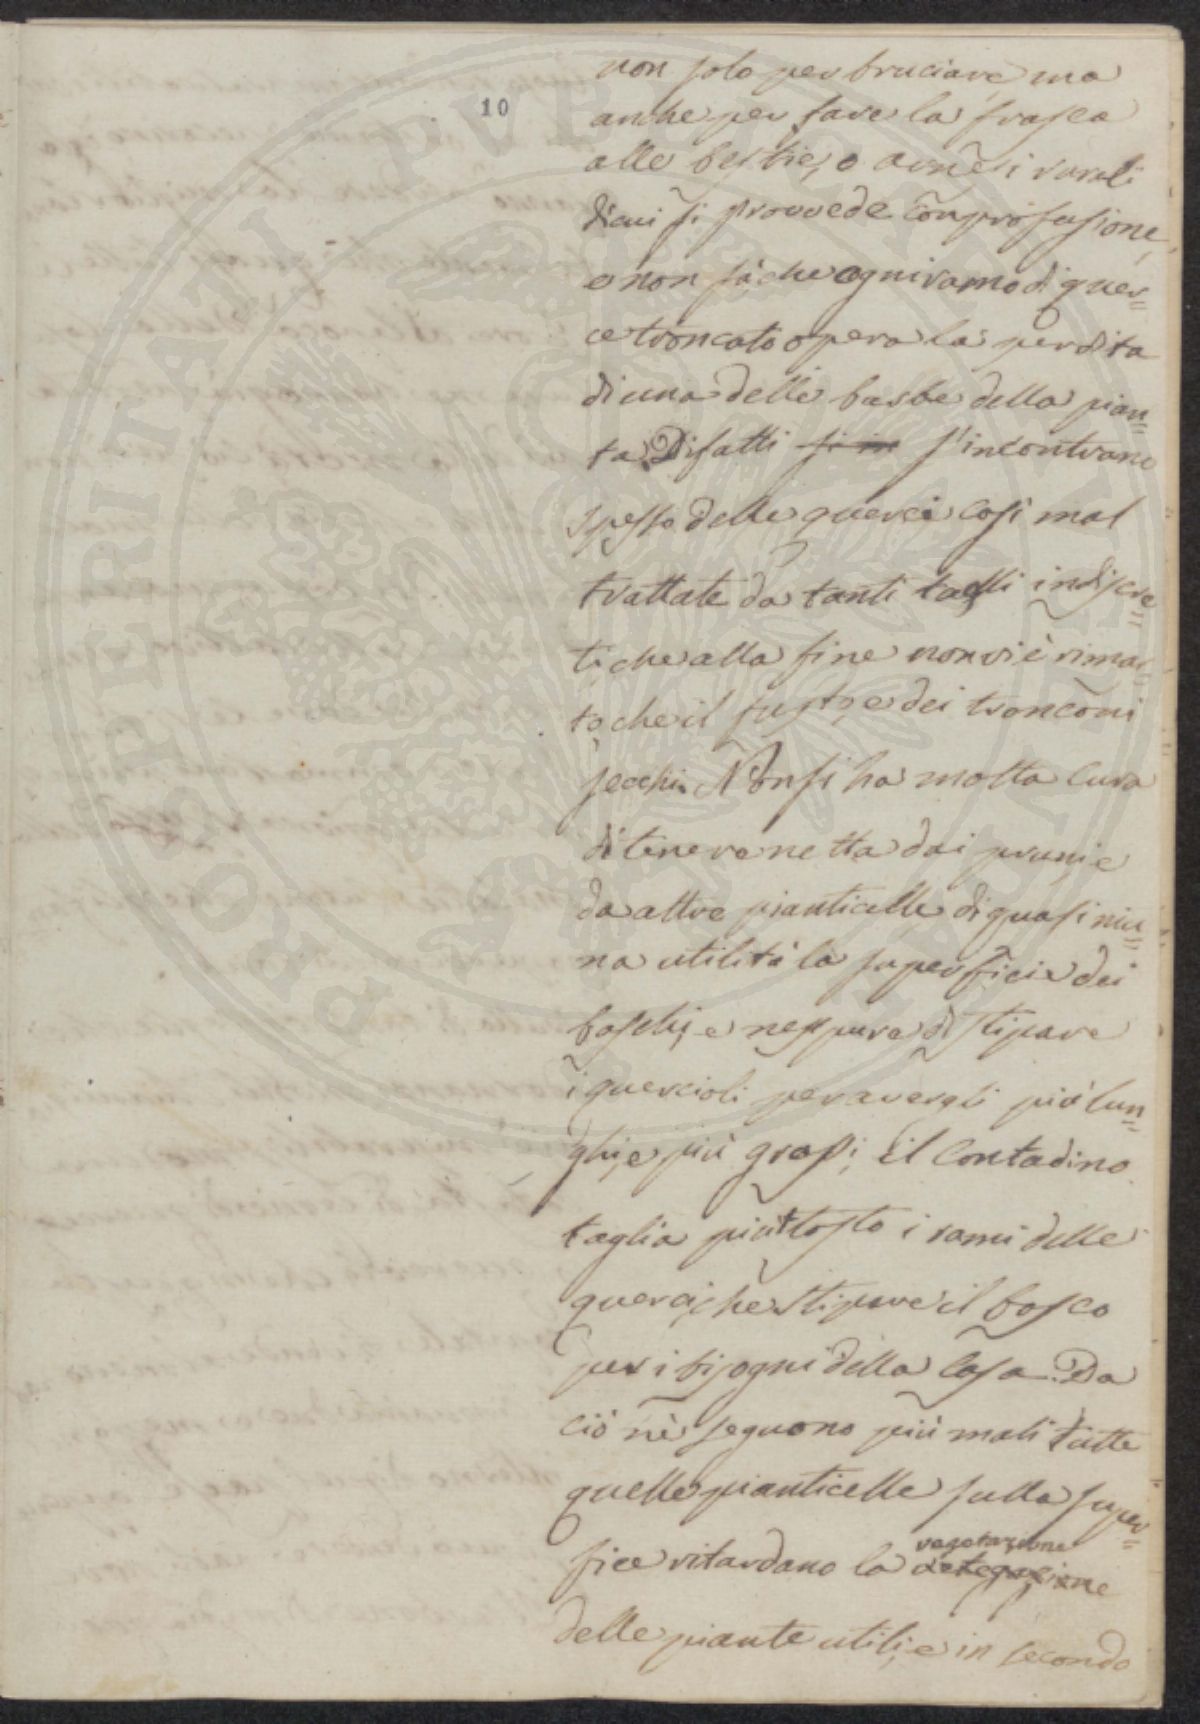 10
non solo per bruciare ma
anche per fare la frasca
alle bestie, o arnesi rurali
di cui si provvede con profusione,
e non sà che ogni ramo di quer=
ce troncato opera la perdita
di una delle barbe della pian=
ta. Difatti si in s'incontrano
spesso delle querci così mal
trattate da tanti taglli indiscre=
ti, che alla fine non vi è rimas=
to, che il fusto, e dei tronconi
secchi. Non si ha molta cura
di tenere netta dai pruni, e
da altre pianticelle, di quasi niu=
na utilità la superficie dei
boschi, e neppure di stipare
i quercioli per avergli più lun=
ghi, e più grossi; il Contadino
taglia piuttosto i rami delle
querci, che stipare il bosco
per i bisogni della Casa. Da
ciò nè seguono più mali tutte
quelle pianticelle sulla super=
fice ritardano la vegetazione
delle piante utili, e in secondo
PROPERITATI PVBLICAE